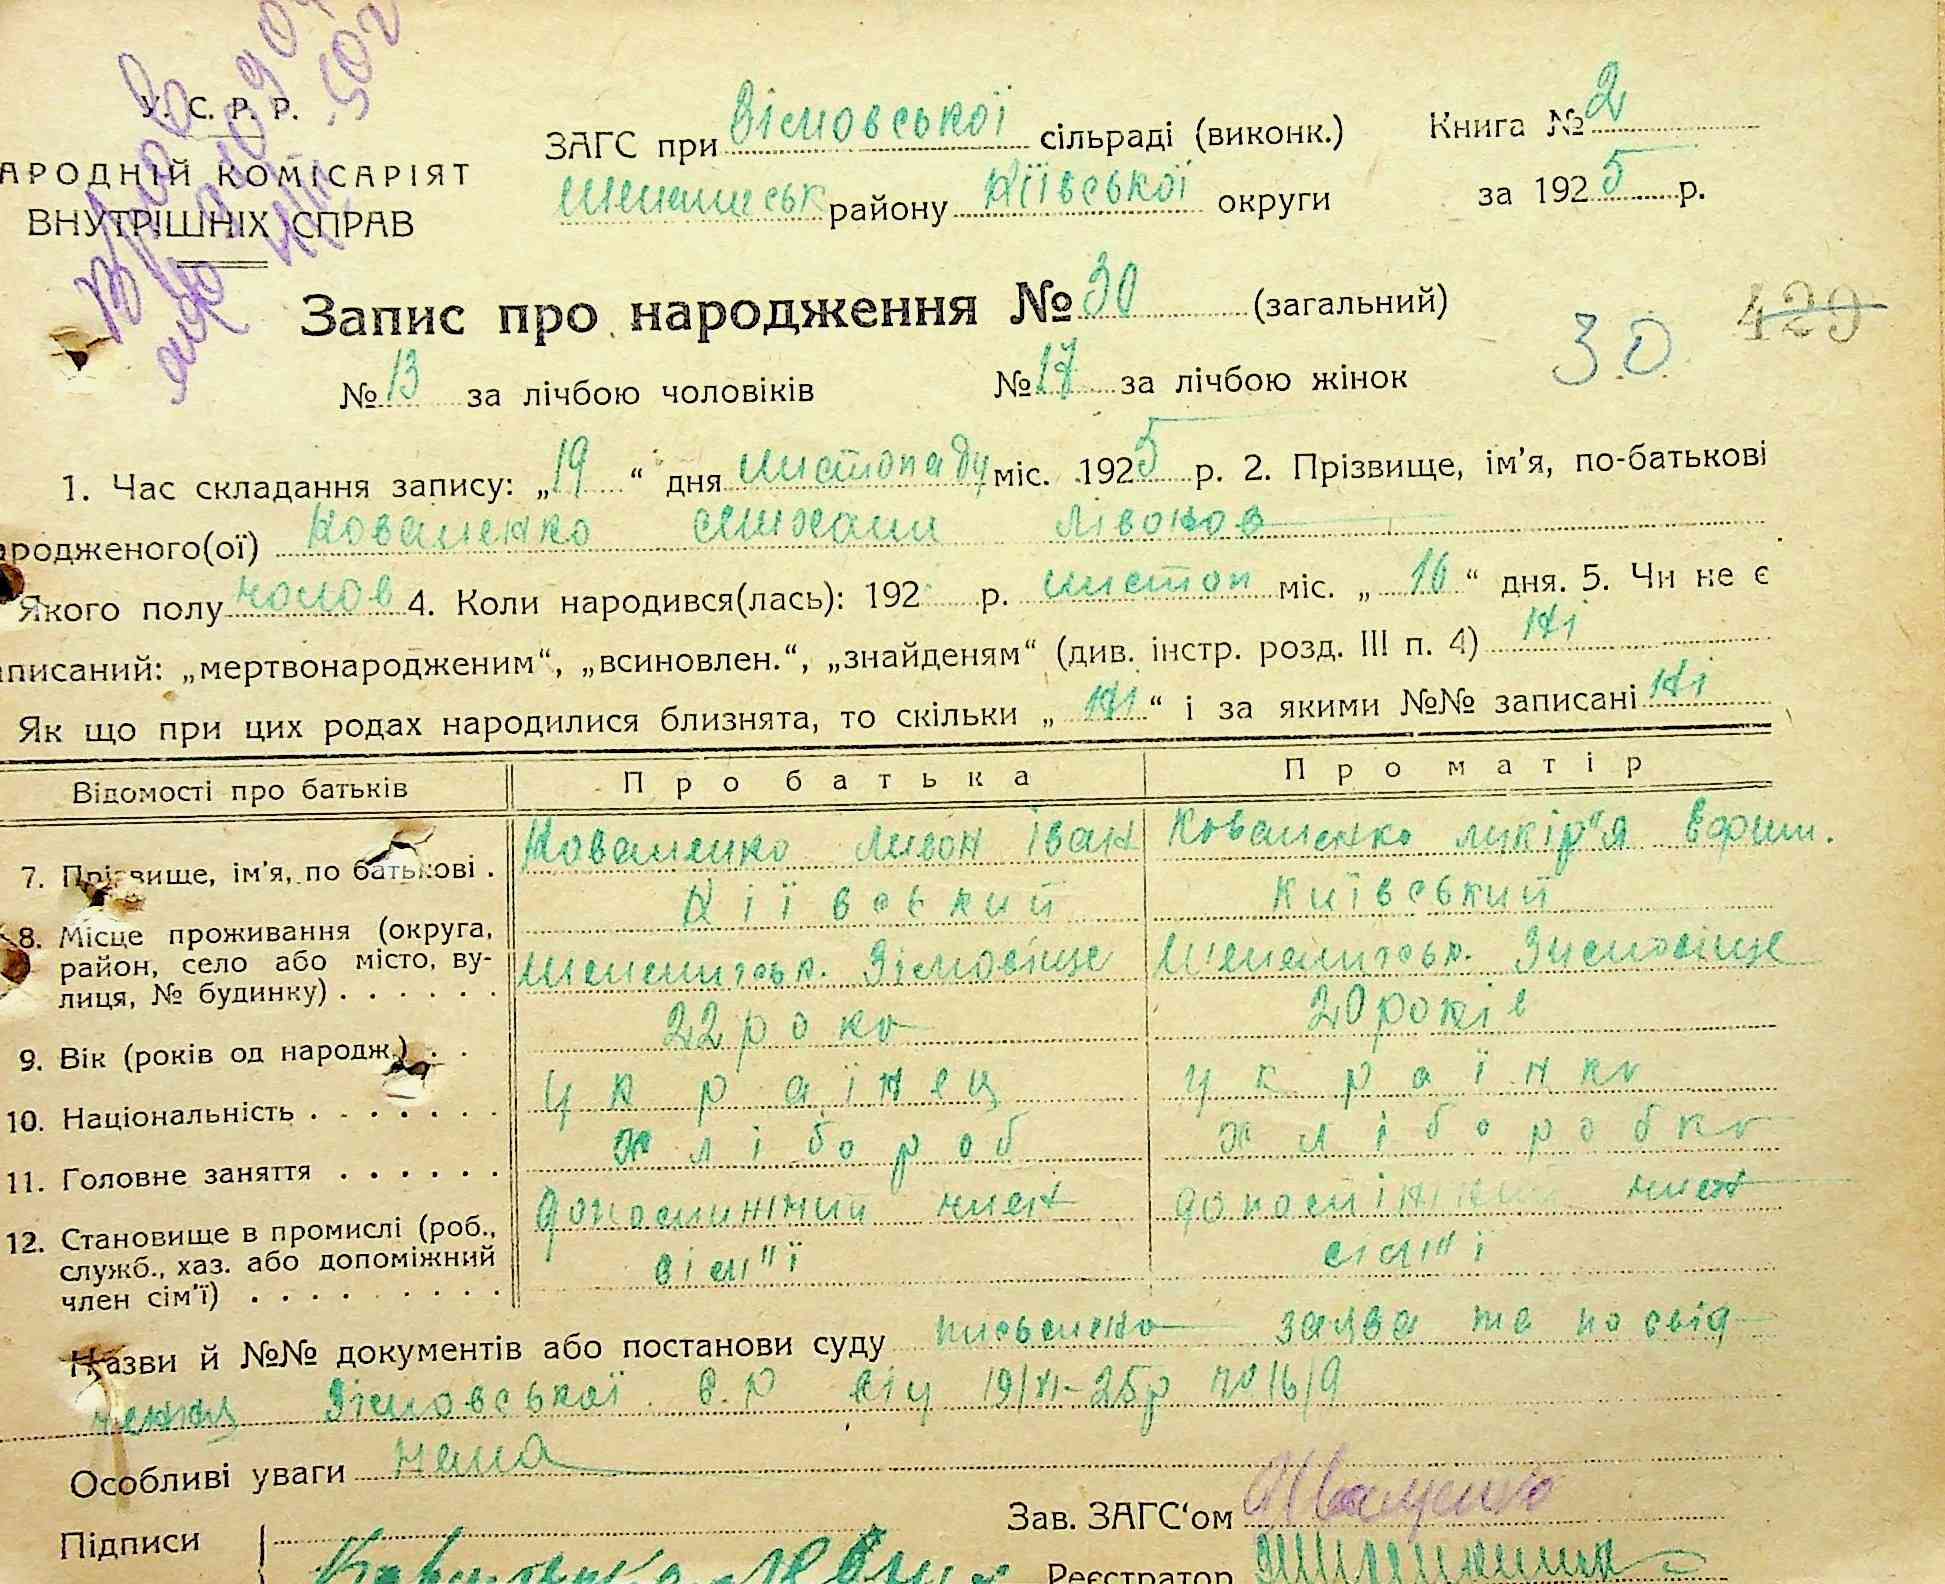 У. С. Р. Р.
АРОДНІЙ КОМІСАРІЯТ
ВНУТРІШНІХ СПРАВ
ЗАГС при Зімовської сільраді (виконк.)
Книга № 2
районy Київської округи
за 1925 р.
Запис про народження № 30 (загальний)
30 429
№ 13 за лічбою чоловіків № 17 за лічбою жінок
1. Час складання запису: „19“ дня листопаду міс. 1925 р. 2. Прізвище, ім'я, по-батькові
ародженого(ої) Коваленко Михаил Лівонов
Якого полу чолов 4. Коли народився(лась): 192 р. листоп міс. „16“ дня. 5. Чи не є
аписаний: „мертвонародженим“, „всиновлен.“, „знайденям“ (див. інстр. розд. III п. 4) Ні
Як що при цих родах народилися близнята, то скільки „Ні“ і за якими №№ записані Ні
Відомості про батьків Про батька Про матір
7. Прізвище, ім'я, по батькові . Коваленко Ливон Іван Коваленко Ликір"я Єфим.
8. Місце проживання (округа, район, село або місто, вулиця, № будинку) . . . . . .
Кіївський Київський
Зімовіще Зимовіще
9. Вік (років од народж.) . . 22 роко 20 років
10. Національність . . . . . . . українец українко
11. Головне заняття . . . . . . хлібороб хліборобко
12. Становище в промислі (роб., служб., хаз. або допоміжний член сім'ї) . . . . . . . . .
допоміжний член допоміжний член
сім"ї сім"ї
Назви й №№ документів або постанови суду письмено заява та посвід
чення Зімовської с.р від 19/XI-25р № 16/9
Особливі уваги нема
Зав. ЗАГС'ом
Підписи
Реєстратор